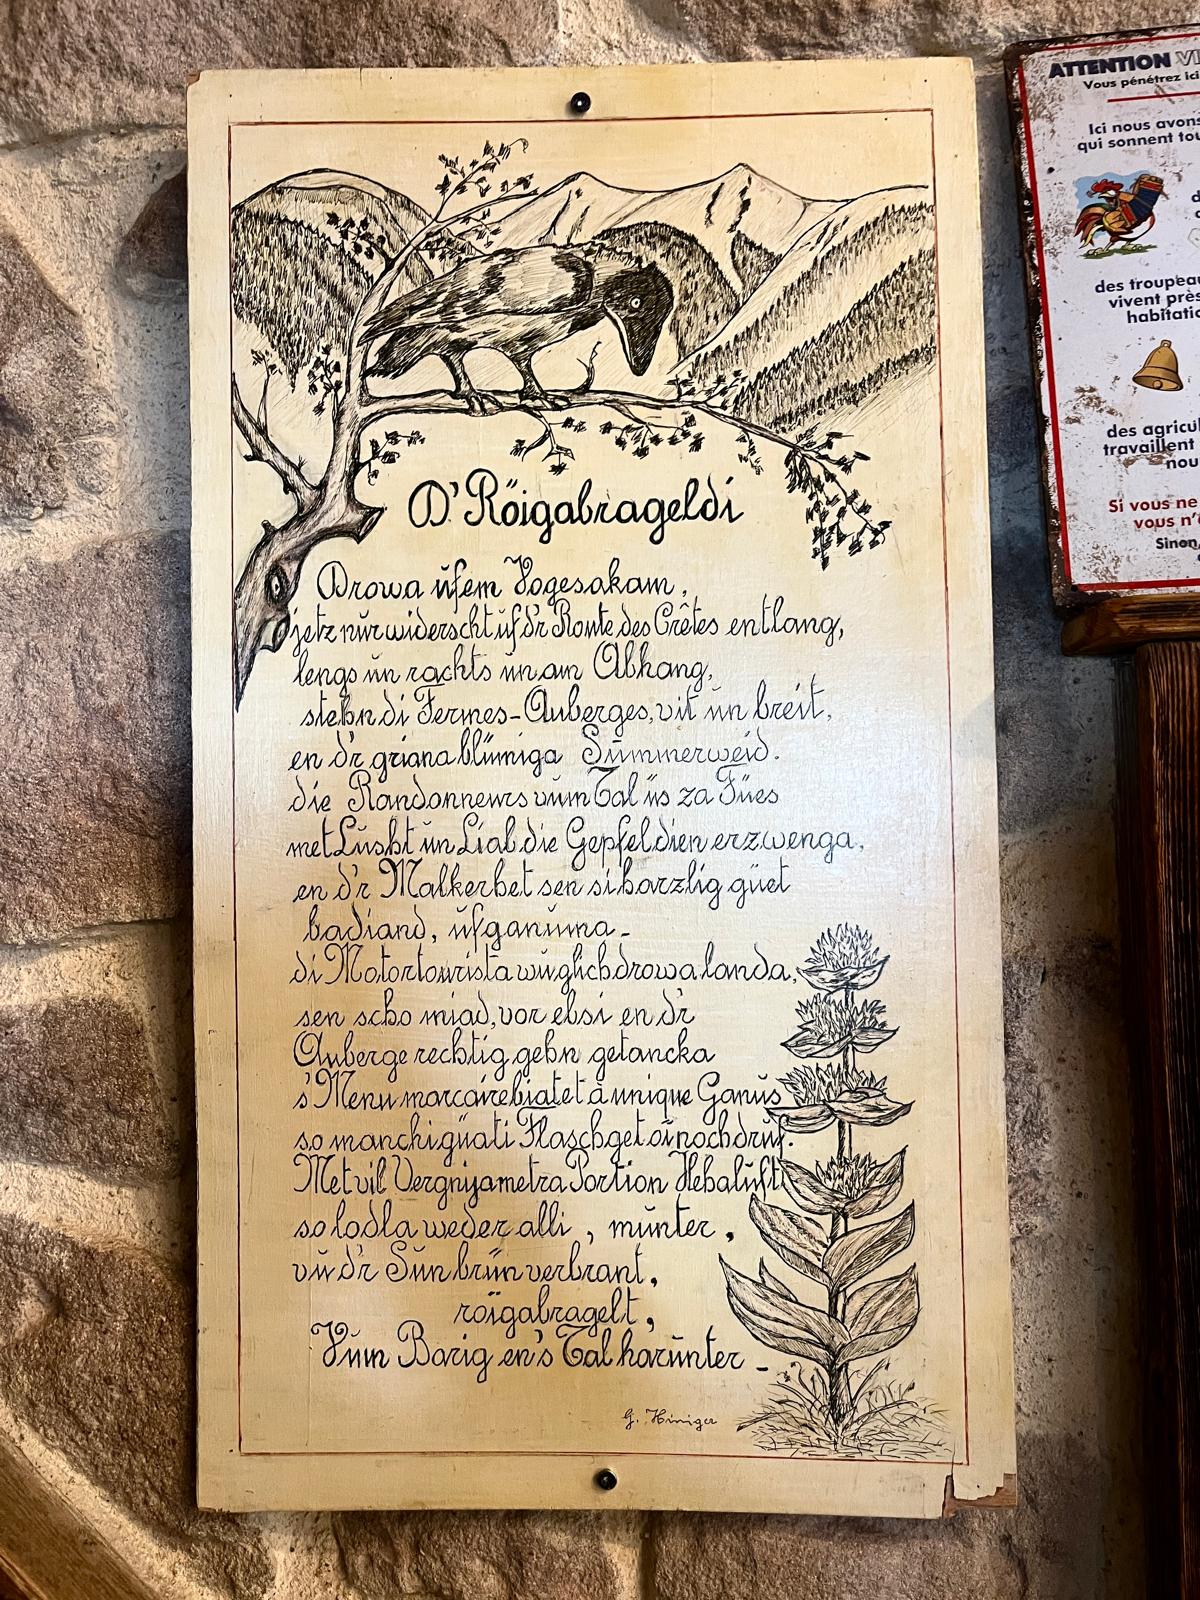 D'Röigabrageldi
Drowa ŭfem Vogesakam,
jetz nŭr widerscht ŭf d'r Route des Crêtes entlang,
lengs ŭn rachts ŭn am Abhang,
stehn di Fermes-Auberges, vit ŭn breit,
en d'r griana blŭmiga Sŭmmerweid.
die Randonneurs vŭm Tal üs za Fües
met Lŭsht ŭn Liab die Gepfel dien erzwenga,
en d'r Malkerhet sen si harzlig güet
badiand, ŭfganŭma -
di Motortourista wŭ glich drowa landa,
sen scho miad, vor ebsi en d'r
Auberge rechtig gehn getancka
s'Menu marcaire biatet à unique Ganŭs
so manchi güati Flasch get oi noch drŭf.
Met vil Vergnija met ra Portion Hehalŭft
so lodla weder alli, mŭnter,
vŭ d'r Sŭn brŭn verbrant,
röigabragelt,
Vŭm Barig en's Tal harŭnter -
G. Hiniger
ATTENTION
Vous pénétrez ici
Ici nous avons
qui sonnent
des
vivent près
des
travaillent
Si vous ne
vous n'
Sinon,